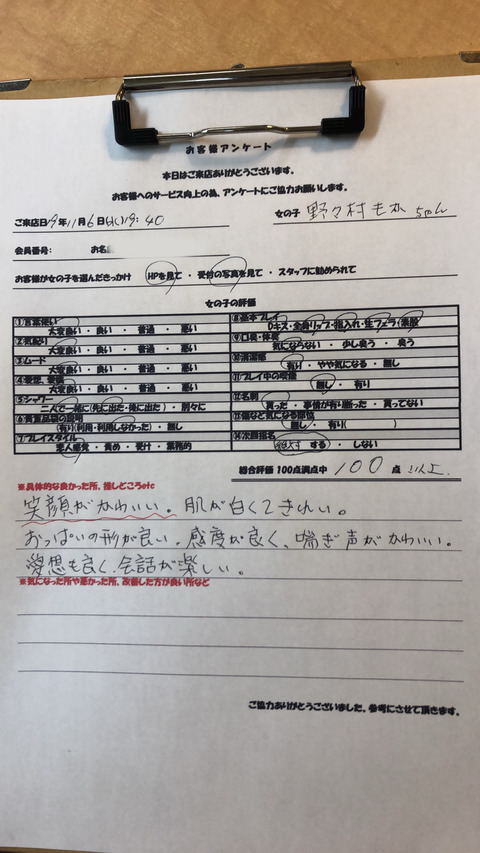 お客様アンケート
本日はご来店ありがとうございます。
お客様へのサービス向上の為、アンケートにご協力お願いします。
ご来店日19年11月6日(水)19:40 女の子 野々村もか ちゃん
会員番号: お名
お客様が女の子を選んだきっかけ HPを見て ・ 受付の写真を見て ・ スタッフに勧められて
女の子の評価
①言葉使い
大変良い ・ 良い ・ 普通 ・ 悪い
②気配り
大変良い ・ 良い ・ 普通 ・ 悪い
③ムード
大変良い ・ 良い ・ 普通 ・ 悪い
④愛想、愛嬌
大変良い ・ 良い ・ 普通 ・ 悪い
⑤シャワー
二人で一緒に(先に出た・後に出た) ・ 別々に
⑥貴重品袋の説明
(有り(利用・利用しなかった) ・ 無し
⑦プレイスタイル
恋人感覚 ・ 責め ・ 受け ・ 業務的
⑧基本プレイ
Dキス・全身リップ・指入れ・生フェラ・素股
⑨口臭・体臭
気にならない ・ 少し臭う ・ 臭う
⑩清潔感
有り ・ やや気になる ・ 無し
⑪プレイ中の
無し ・ 有り
⑫名刺
貰った ・ 事情が有り断った ・ 貰ってない
⑬傷など気になる部位
無し ・ 有り( )
⑭次回指名
絶対 する ・ しない
総合評価 100点満点中 100 点 以上
※具体的な良かった所、推しどころetc
笑顔がかわいい。肌が白くてきれい。
おっぱいの形が良い。感度が良く、喘ぎ声がかわいい。
愛想も良く、会話が楽しい。
※気になった所や悪かった所、改善した方が良い所など
ご協力ありがとうございました。参考にさせて頂きます。